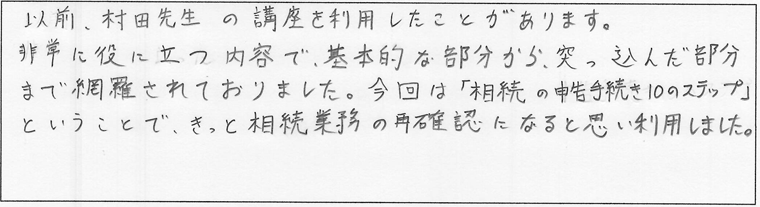 以前、村田先生の講座を利用したことがあります。
非常に役に立つ内容で、基本的な部分から、突っ込んだ部分
まで網羅されておりました。今回は「相続の申告手続き10のステップ」
ということで、きっと相続業務の再確認になると思い利用しました。